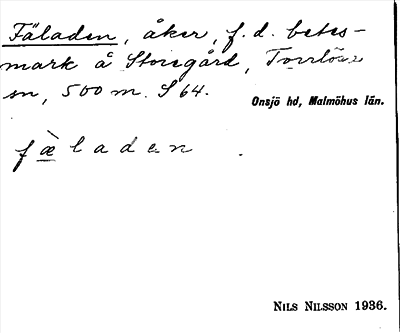 Fäladen, åker, f. d. betes-
mark å Storegård, Torrlösa
sn, 500 m. S 64.
Onsjö hd, Malmöhus län.
fæ̀laden.
NILS NILSSON 1936.